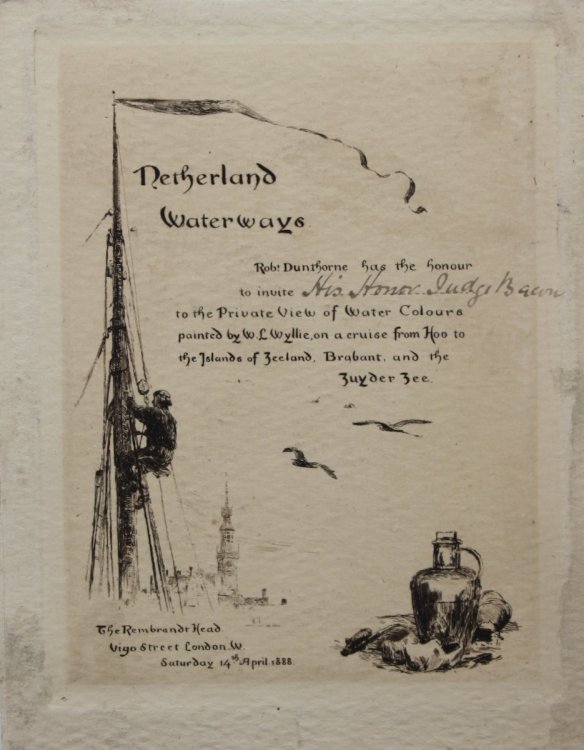 Netherland
Waterways
Robt Dunthorne has the honour
to invite His Honor Judge Bacon
to the Private View of Water Colours
painted by W L Wyllie, on a cruise from Hoo to
the Islands of Zeeland, Brabant, and the
Zuyder Zee.
The Rembrandt Head
Vigo Street London. W.
Saturday 14th April 1888